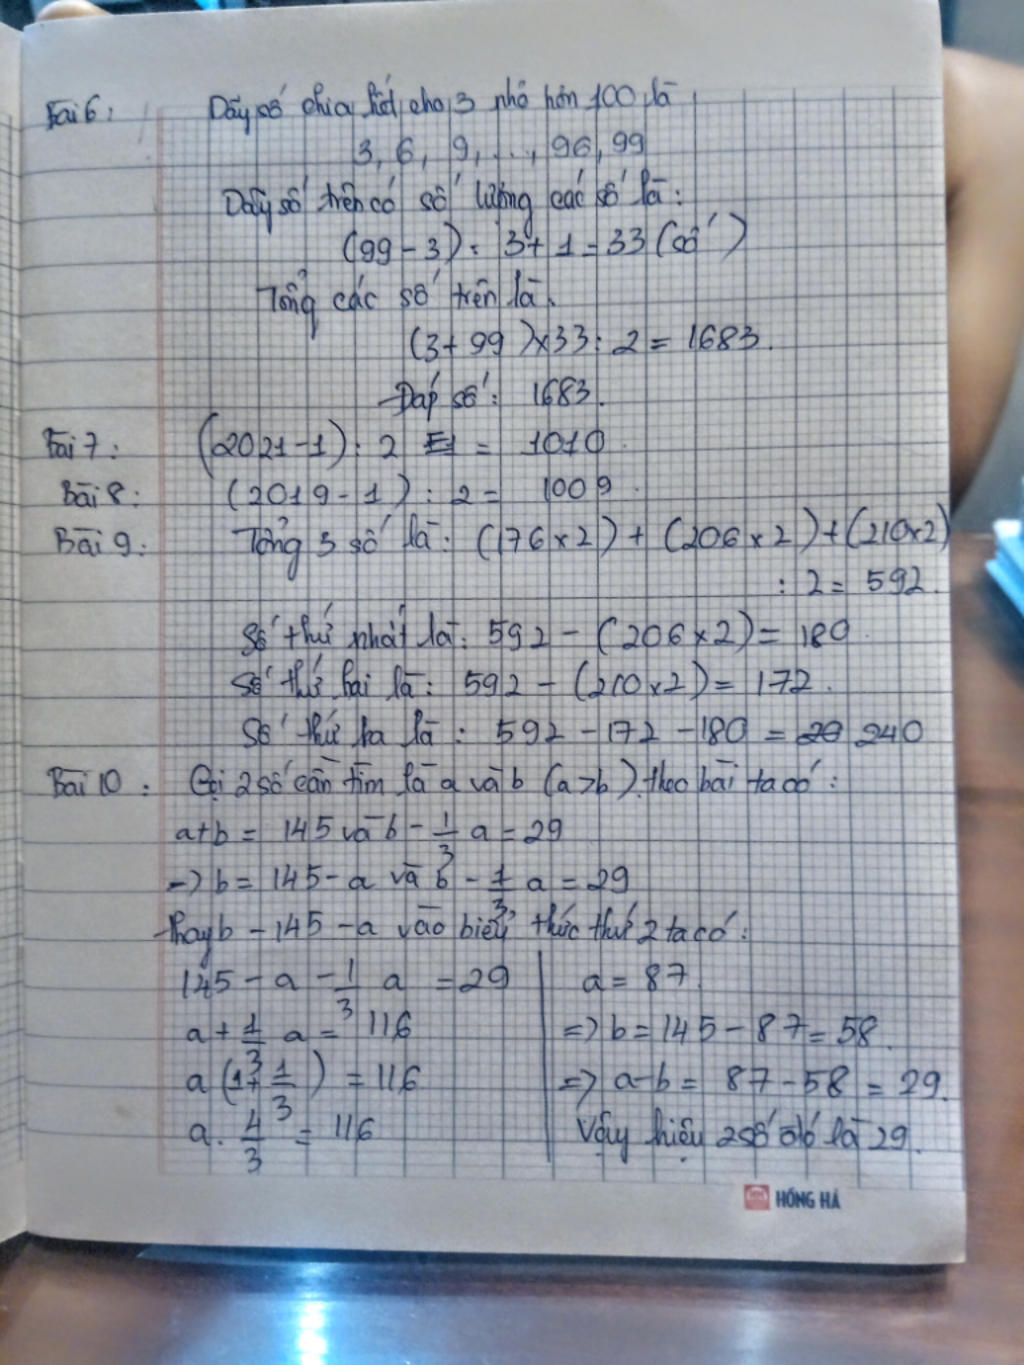 Bài 6: Dãy số chia hết cho 3 nhỏ hơn 100 là
3, 6, 9, ..., 96, 99
Dãy số trên có số lượng các số là:
(99 - 3) : 3 + 1 = 33 (số)
Tổng các số trên là.
(3 + 99) x 33 : 2 = 1683.
Đáp số: 1683.
Bài 7: (2021 - 1) : 2 = 1010.
Bài 8: (2019 - 1) : 2 = 1009.
Bài 9: Tổng 3 số là: (176 x 2) + (206 x 2) + (210 x 2)
: 2 = 592.
Số thứ nhất là: 592 - (206 x 2) = 180.
Số thứ hai là: 592 - (210 x 2) = 172.
Số thứ ba là: 592 - 172 - 180 = 240
Bài 10: Gọi 2 số cần tìm là a và b (a > b). theo bài ta có:
a + b = 145 và b - 1/3 a = 29
=> b = 145 - a và b - 1/3 a = 29
thay b - 145 - a vào biểu thức thứ 2 ta có:
145 - a - 1/3 a = 29
a + 1/3 a = 116
a (1 + 1/3) = 116
a . 4/3 = 116
a = 87.
=> b = 145 - 87 = 58.
=> a - b = 87 - 58 = 29.
Vậy hiệu 2 số đó là 29.
HỒNG HÀ